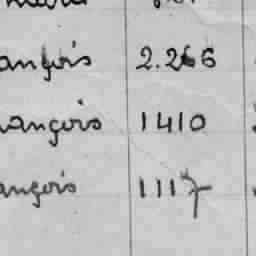 ançois 2.266
rançois 1410
ançois 1117